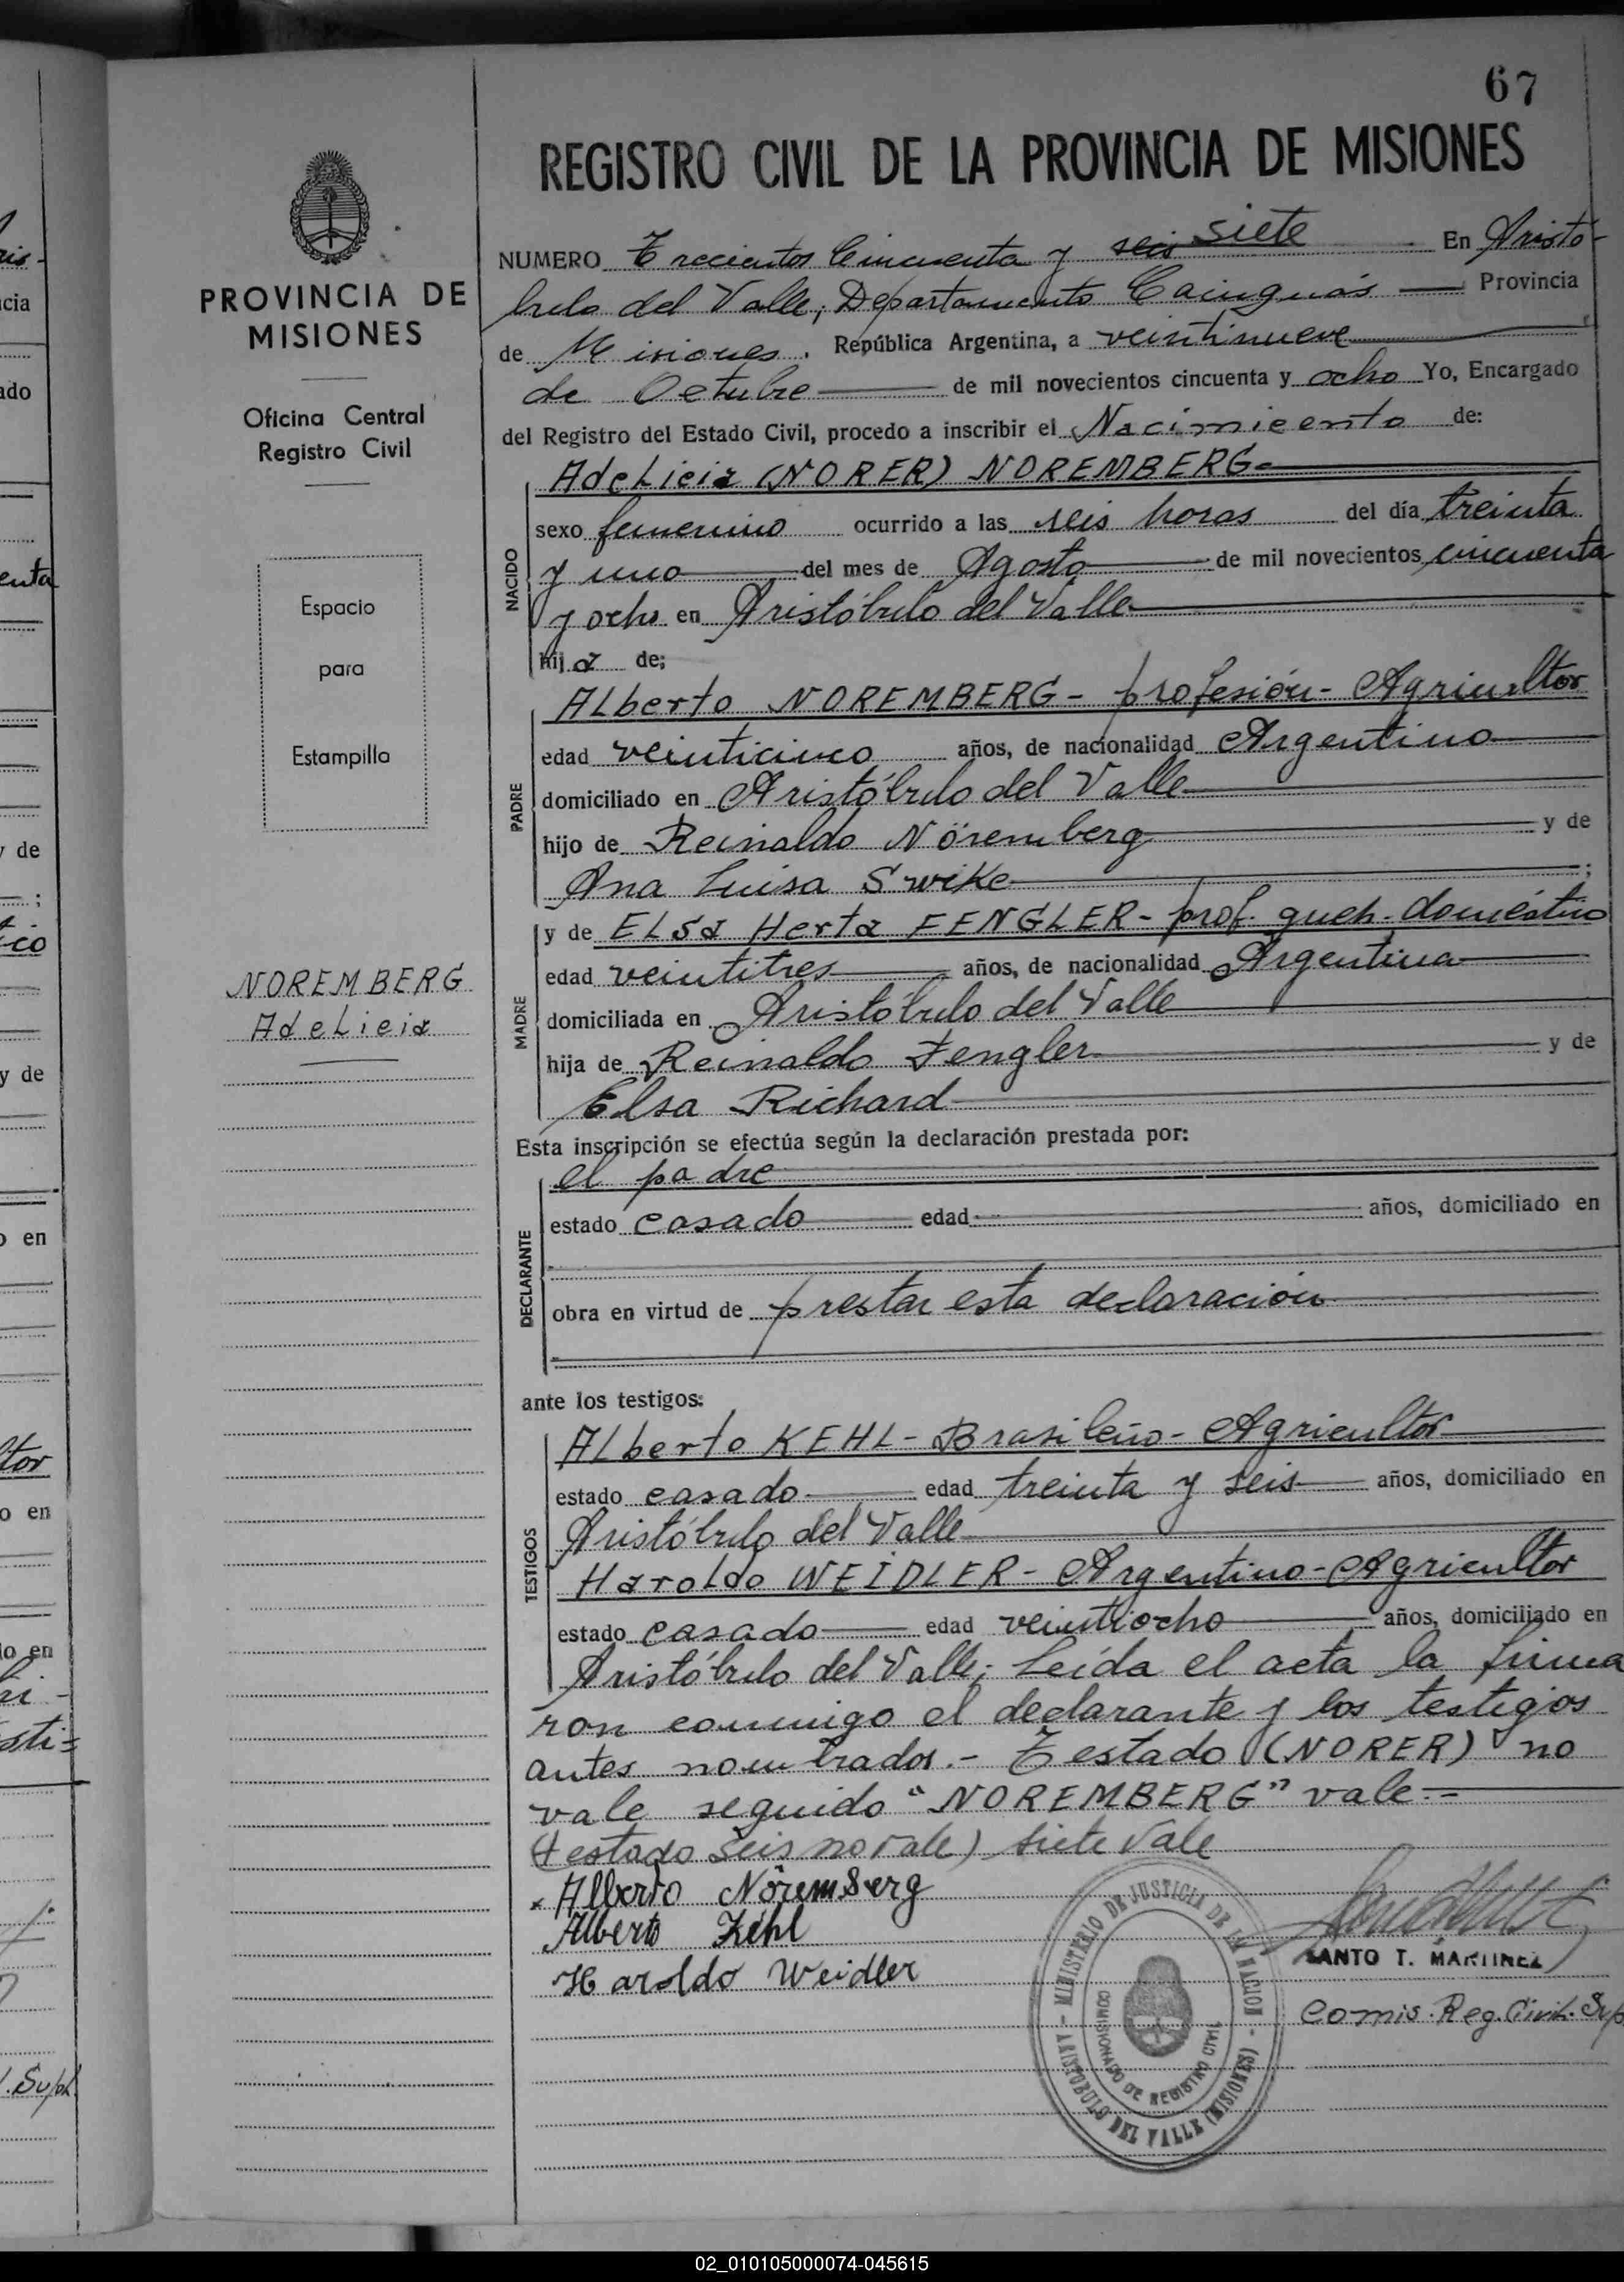 67
REGISTRO CIVIL DE LA PROVINCIA DE MISIONES
PROVINCIA DE
MISIONES
Oficina Central
Registro Civil
Espacio
para
Estampilla
NOREMBERG
Adelicia
NUMERO Trecientos Cincuenta y seis siete En Aristó-
bulo del Valle, Departamento Cainguás Provincia
de Misiones. República Argentina, a veintinueve
de Octubre de mil novecientos cincuenta y ocho Yo, Encargado
del Registro del Estado Civil, procedo a inscribir el Nacimiento de:
Adelicia (NORER) NOREMBERG-
NACIDO
sexo femenino ocurrido a las seis horas del día treinta
y uno del mes de Agosto de mil novecientos cincuenta
y ocho en Aristóbulo del Valle
hija de;
Alberto NOREMBERG - profesión - Agricultor
PADRE
edad veinticinco años, de nacionalidad Argentino
domiciliado en Aristóbulo del Valle
hijo de Reinaldo Nöremberg y de
Ana Luisa Swike ;
y de ELSA Herta FENGLER - prof. queh. doméstico
MADRE
edad veintitres años, de nacionalidad Argentina
domiciliada en Aristóbulo del Valle
hija de Reinaldo Fengler y de
Elsa Richard
Esta inscripción se efectúa según la declaración prestada por:
el padre
DECLARANTE
estado casado edad años, domiciliado en
obra en virtud de prestar esta declaración
ante los testigos:
ALberto KEHL - Brasileño - Agricultor
TESTIGOS
estado casado edad treinta y seis años, domiciliado en
Aristóbulo del Valle
Haroldo WEIDLER - Argentino - Agricultor
estado casado edad veintiocho años, domiciliado en
Aristóbulo del Valle; Leída el acta la firma
ron conmigo el declarante y los testigos
antes nombrados.- Testado (NORER) no
vale seguido "NOREMBERG" vale.-
(testado seis no vale) siete Vale
Alberto Nöremberg
Alberto Kehl
Haroldo Weidler
SANTO T. MARTINEZ
Comis. Reg. Civil. Sup
MINISTERIO DE JUSTICIA DE LA NACION
COMISIONADO DE REGISTRO CIVIL
ARISTOBULO DEL VALLE (MISIONES)
02_010105000074-045615